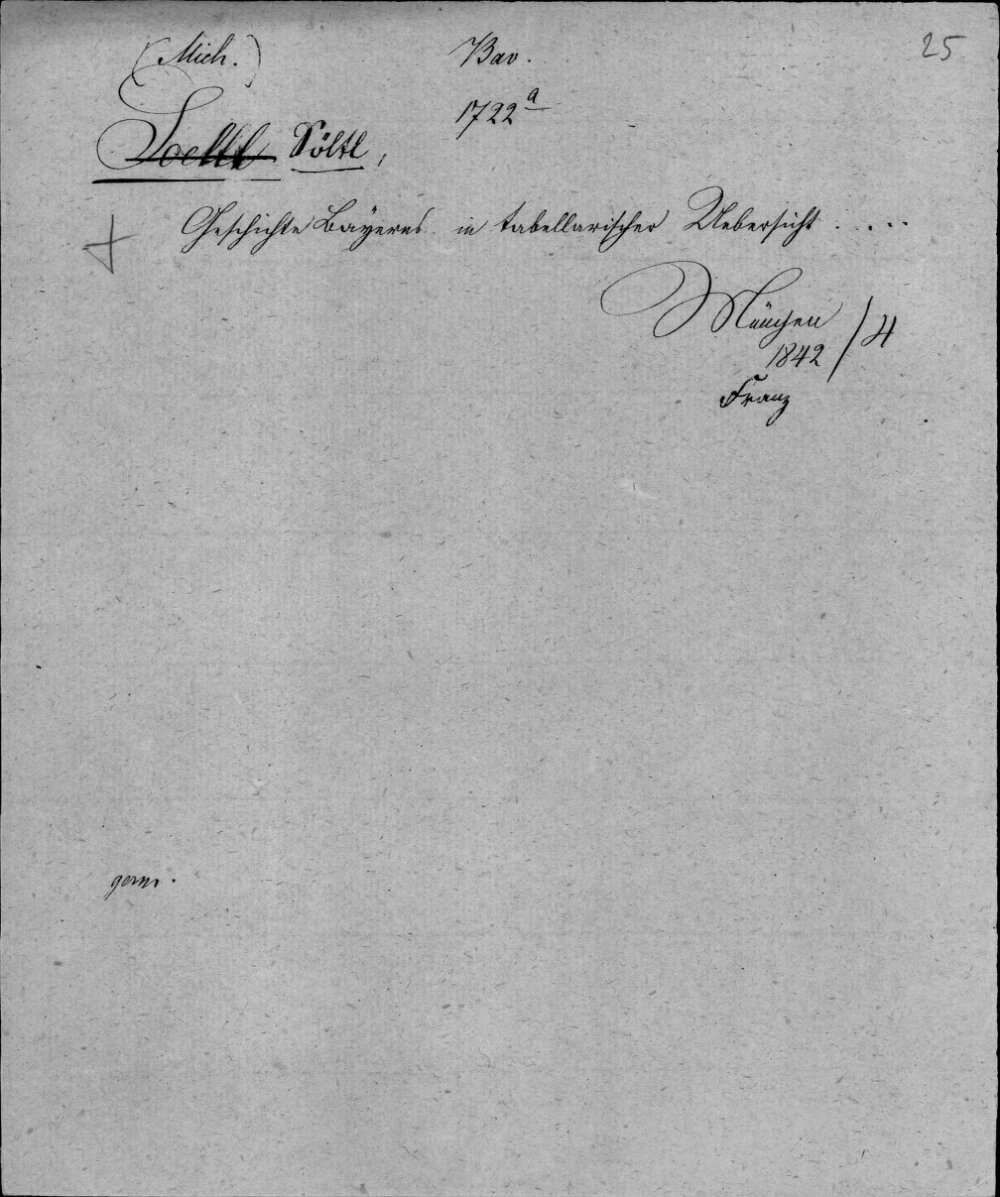 (Mich.) Bav. 25
1722 a
Soeltl Söltl,
Geschichte Bayerns in tabellarischer Uebersicht .....
München /4
1842
Franz
germ.